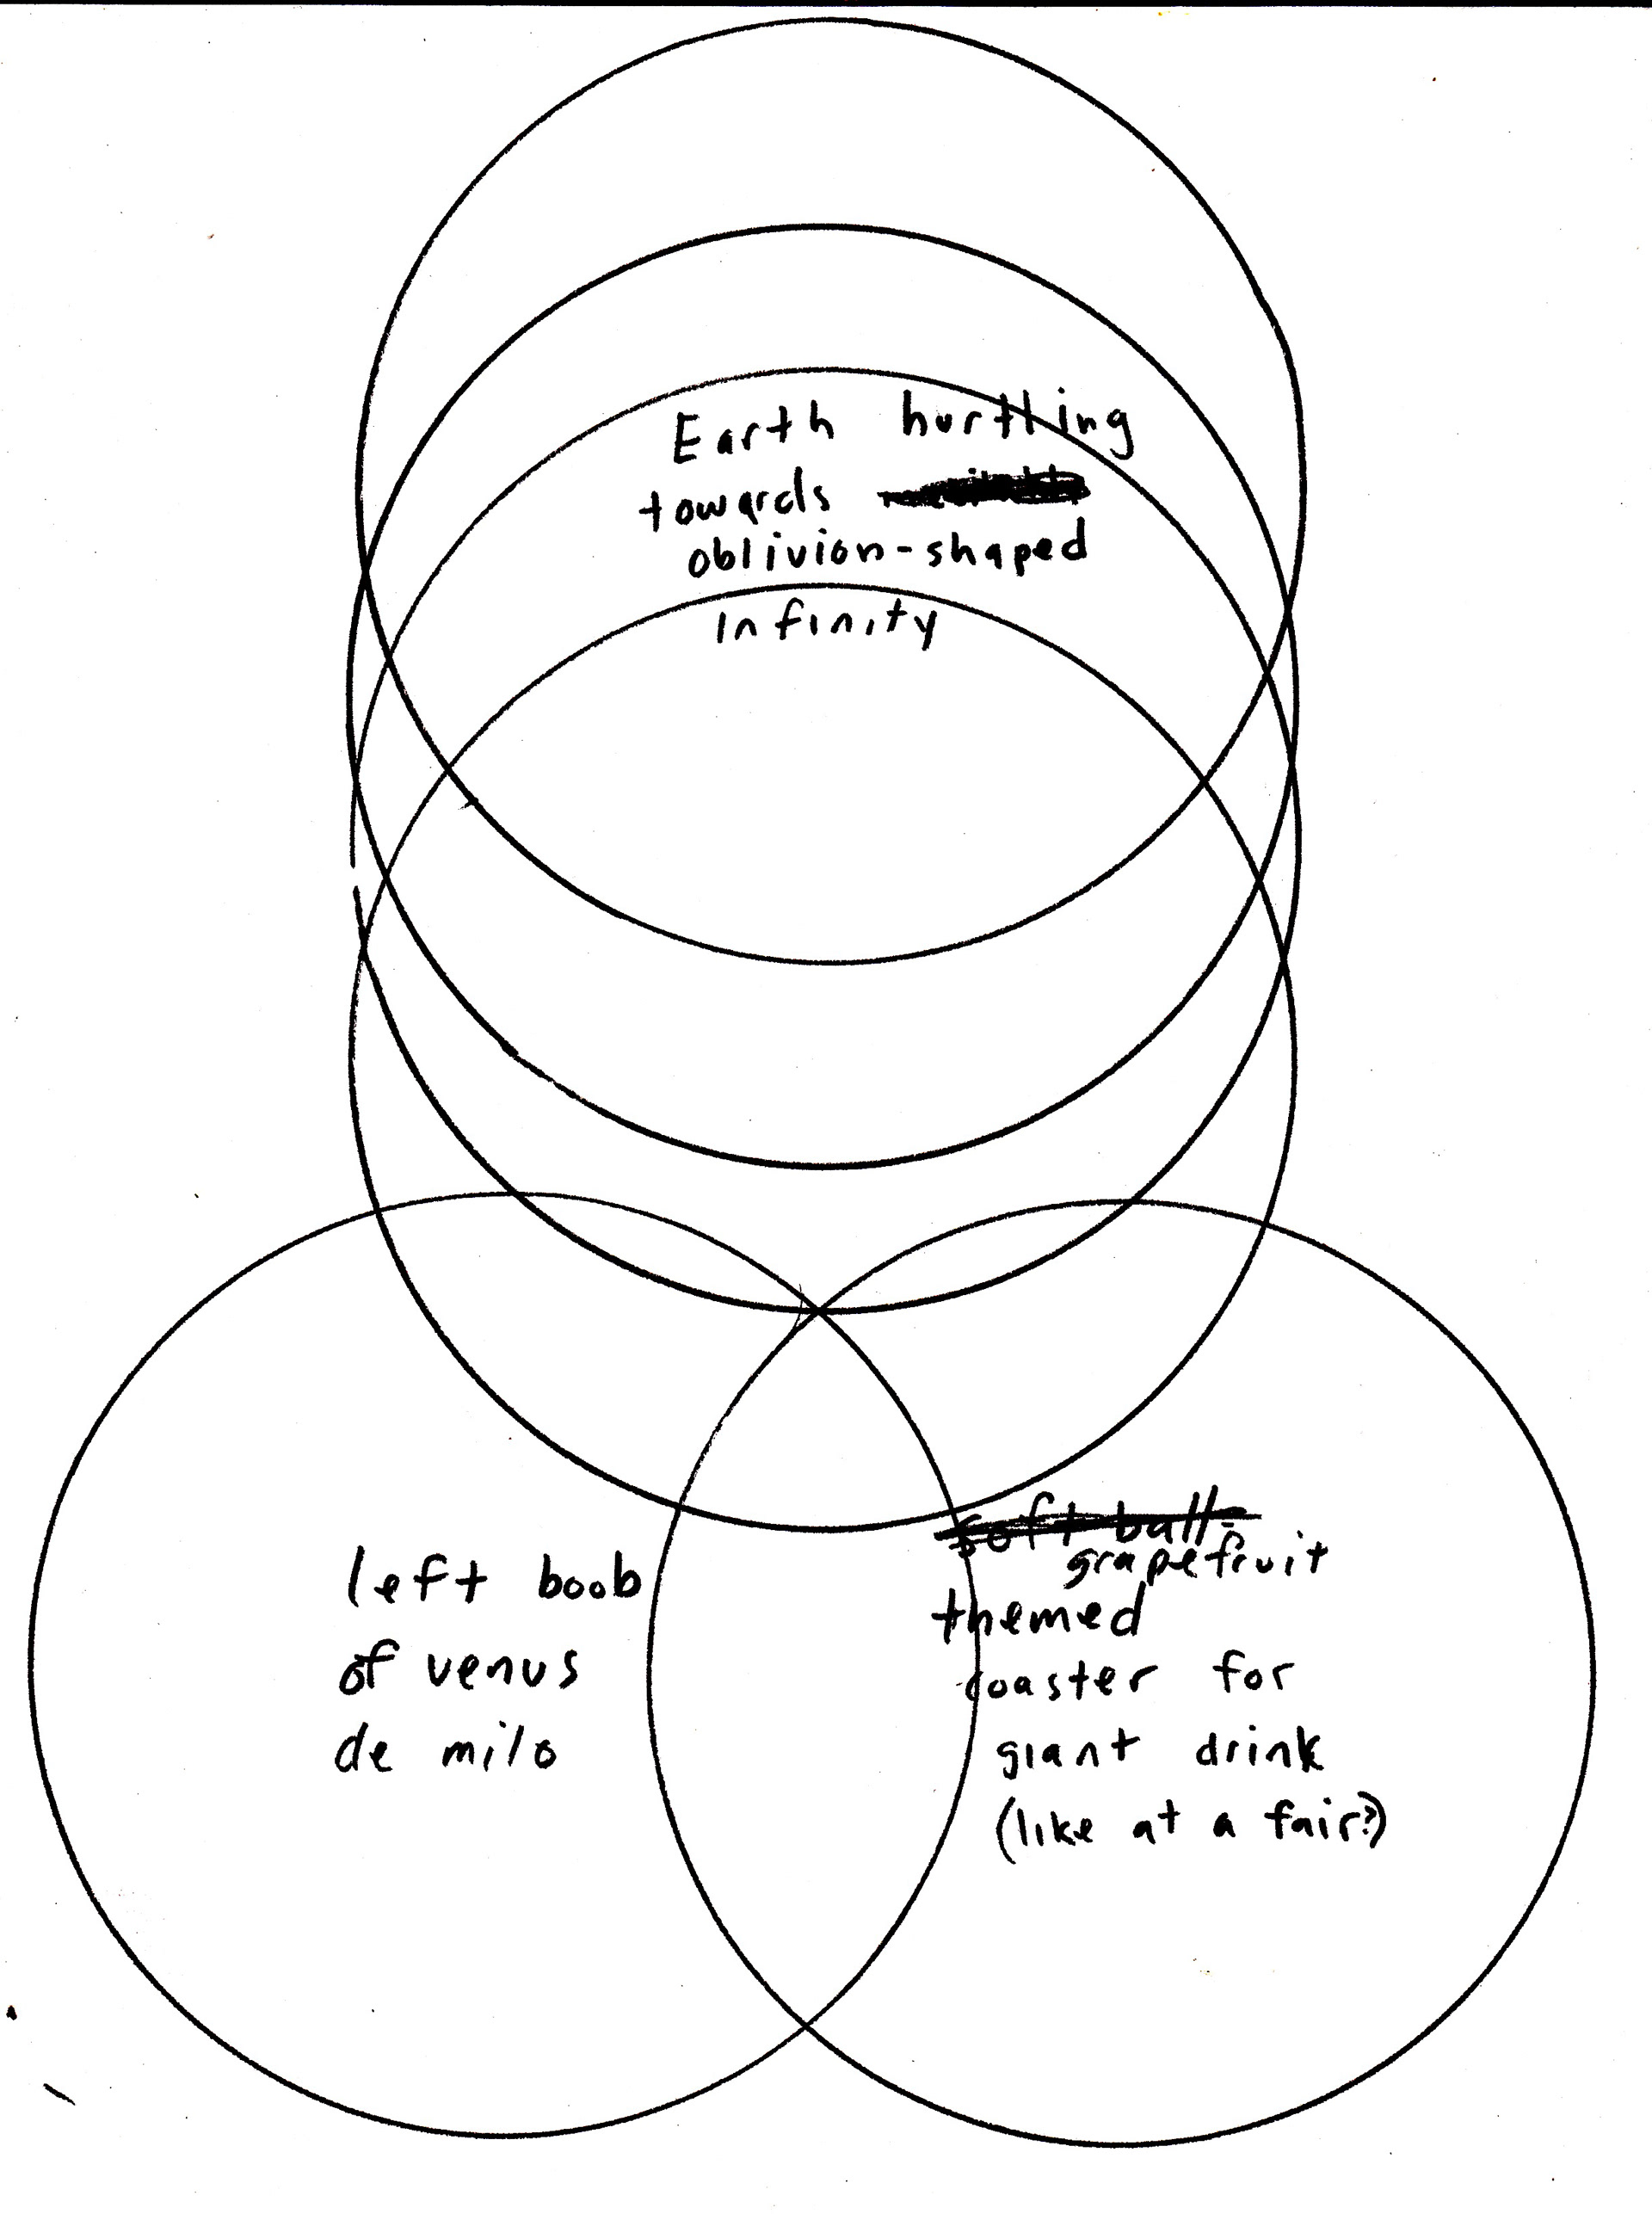 Earth hurtling
towards
oblivion-shaped
Infinity
left boob
of venus
de milo
softball-
grapefruit
themed
coaster for
giant drink
(like at a fair?)